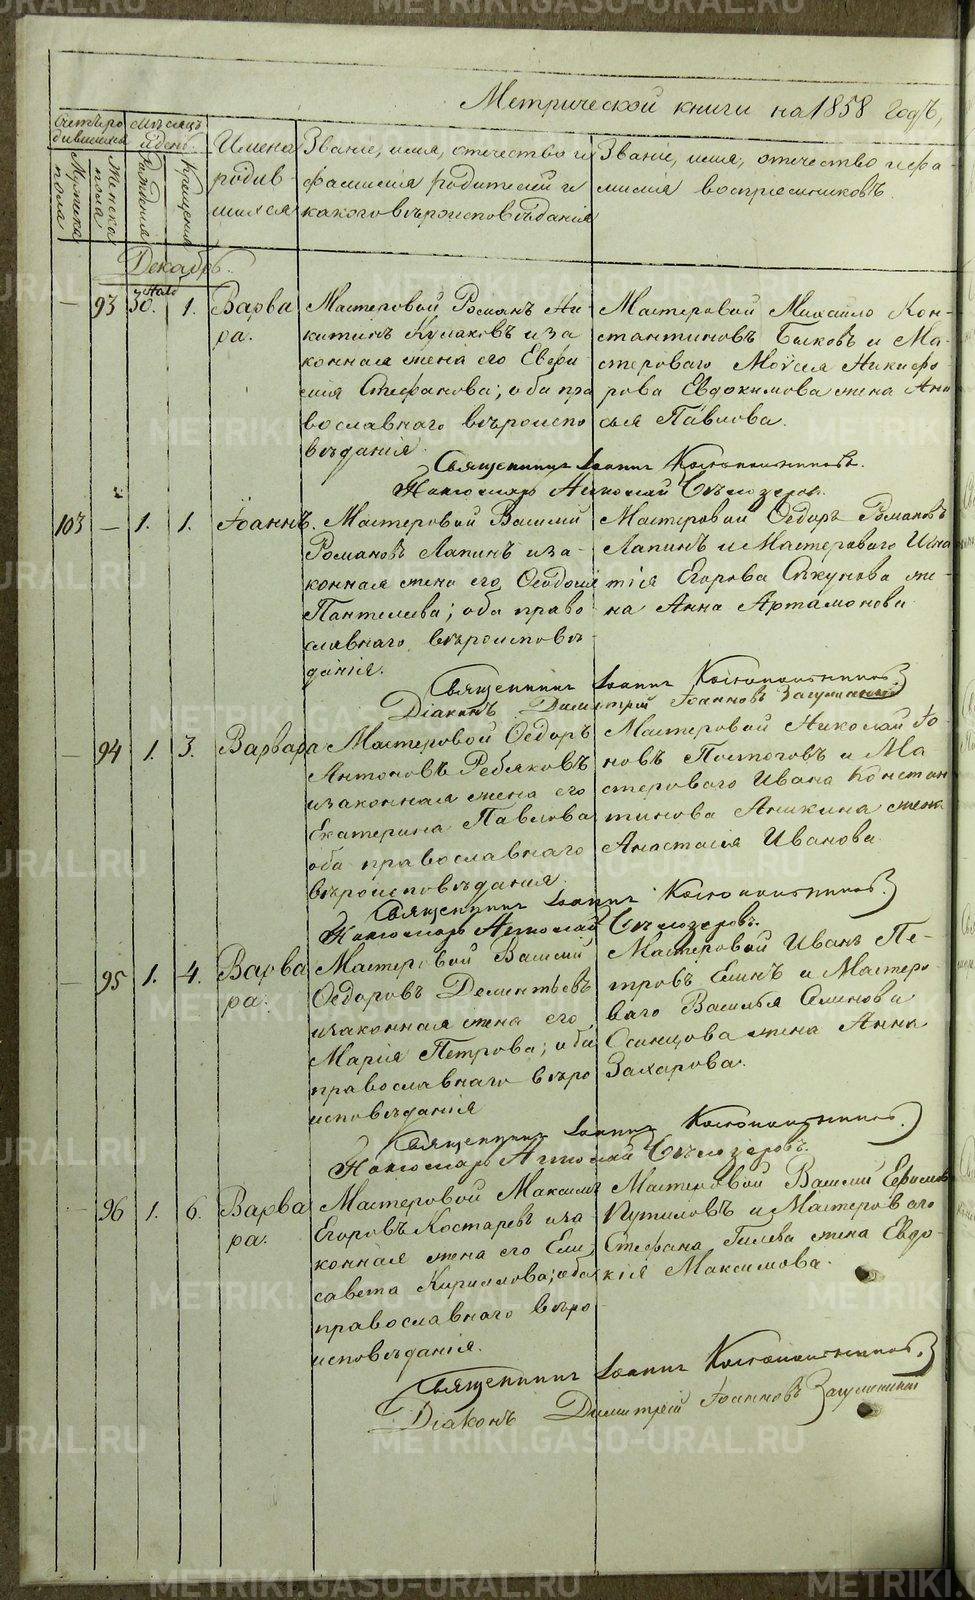 Метрической книги на 1858 годъ,
Счетъ ро
дившихся
Мужска
пола
Женска
пола
Мѣсяцъ
и день.
Рожденія
Крещенія
Имена
родив
шихся
Званіе, имя, отечество и
фамилія родителей и
какого вѣроисповѣданія
Званіе, имя, отечество и фа-
милія воспріемниковъ.
Декабрь.
— 93 30. 1. Варва
ра.
Мастеровой Романъ Ни-
китинъ Кулаковъ и за
конная жена его Евфи
мія Стефанова; оба пра
вославнаго вѣроиспо
вѣданія.
Мастеровой Михайло Кон-
стантиновъ Быковъ и Ма-
стероваго Моѵсея Никифо
рова Евдокимова жена Ани
сья Павлова.
Священникъ Іоаннъ
Пономарь Николай Бѣлозеровъ.
103 — 1. 1. Іоаннъ.
Мастеровой Василій
Романовъ Лапинъ и за-
конная жена его Ѳеодосія
Пантелеева; оба право
славнаго вѣроисповѣ-
данія.
Мастеровой Ѳедоръ Романовъ
Лапинъ и Мастероваго Игна
тія Егорова Сикунова же-
на Анна Артамонова.
Священникъ Іоаннъ
Діаконъ Димитрій Іоанновъ
— 94 1. 3. Варвара
Мастеровой Ѳедоръ
Антоновъ Ребяковъ
и законная жена его
Екатерина Павлова
оба православнаго
вѣроисповѣданія.
Мастеровой Николай Іо
новъ Постоговъ и Ма
стероваго Ивана Констан
тинова Аникина жена
Анастасія Иванова.
Священникъ Іоаннъ
Пономарь Николай Бѣлозеровъ.
— 95 1. 4. Варва
ра.
Мастеровой Василій
Ѳедоровъ Дементьевъ
и законная жена его
Марія Петрова; оба
православнаго вѣро
исповѣданія
Мастеровой Иванъ Пе-
тровъ Елинъ и Мастеро-
ваго Василья Семенова
Осинцова жена Анна
Захарова.
Священникъ Іоаннъ
Пономарь Николай Бѣлозеровъ.
96 1. 6. Варва
ра.
Мастеровой Максимъ
Егоровъ Костаревъ и за
конная жена его Ели
савета Кирилова; оба
православнаго вѣро-
исповѣданія.
Мастеровой Василій Ефимовъ
Путиловъ и Мастероваго
Стефана Гилева жена Евдо-
кія Максимова.
Священникъ Іоаннъ
Діаконъ Димитрій Іоанновъ
METRIKI.GASO-URAL.RU